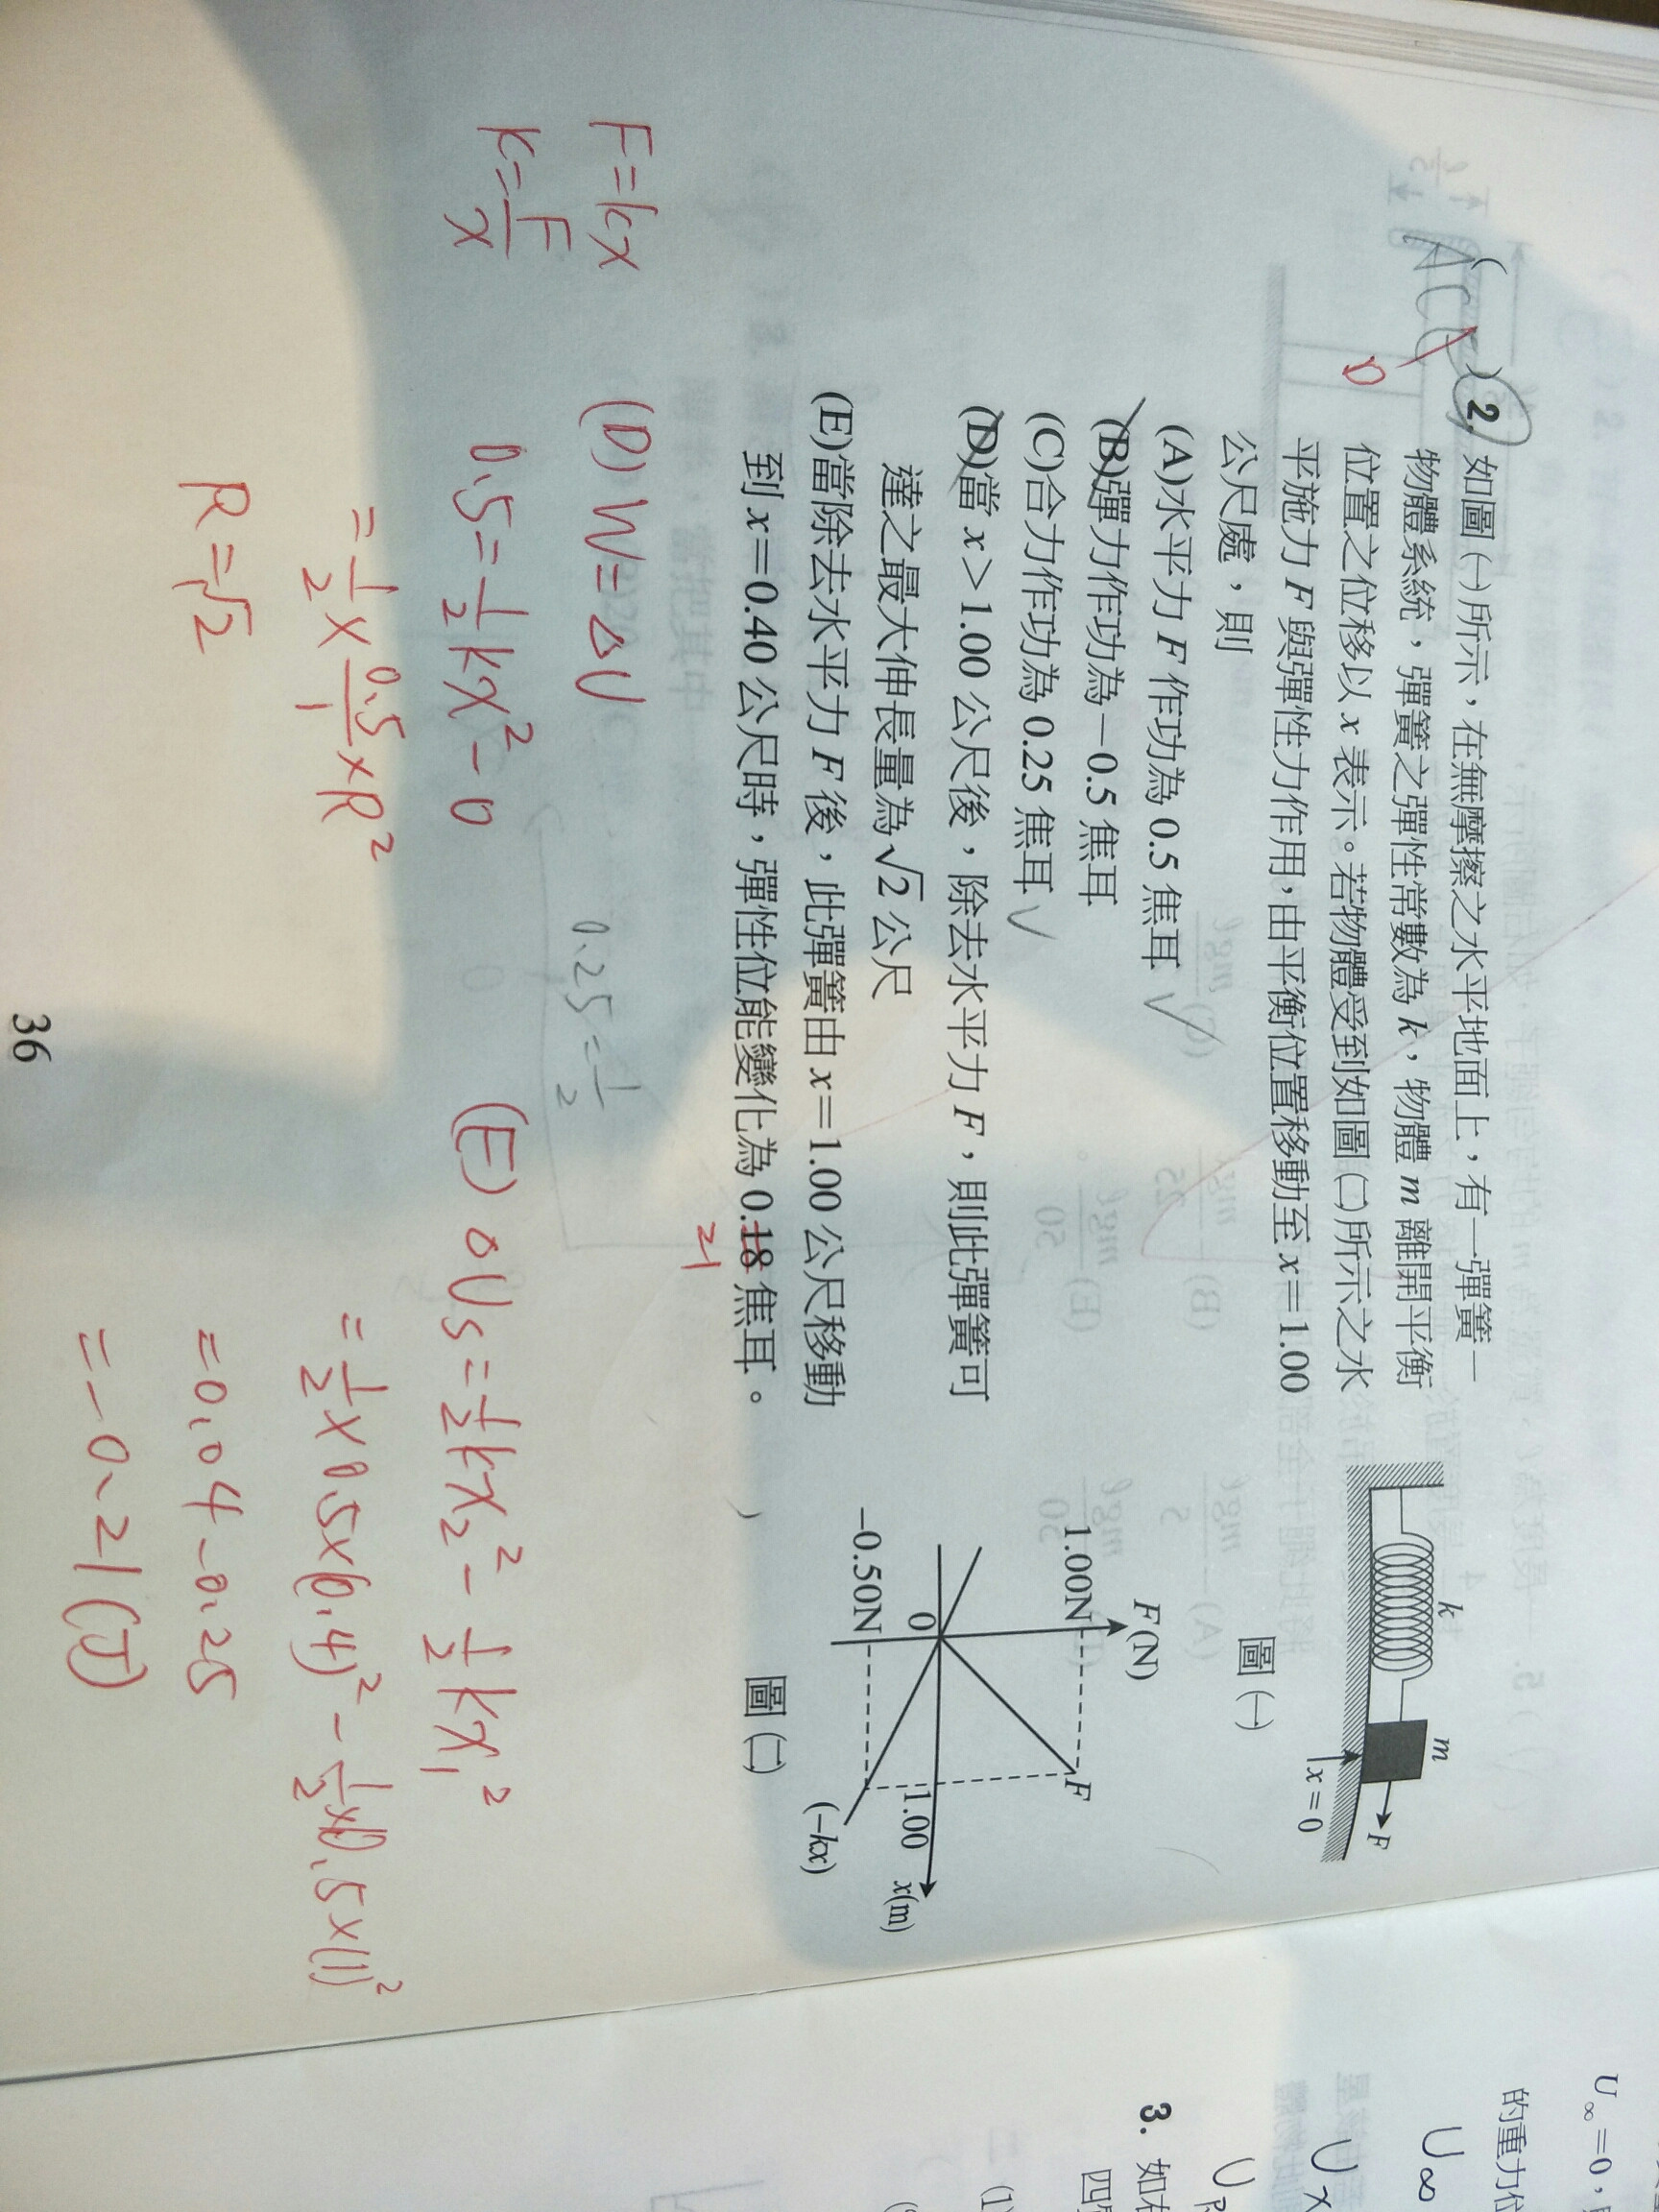 (ACE)
D
2. 如圖㈠所示，在無摩擦之水平地面上，有一彈簧－
物體系統，彈簧之彈性常數為 k，物體 m 離開平衡
位置之位移以 x 表示。若物體受到如圖㈡所示之水
平施力 F 與彈性力作用，由平衡位置移動至 x＝1.00
公尺處，則
(A)水平力 F 作功為 0.5 焦耳 ✓
(B)彈力作功為－0.5 焦耳
(C)合力作功為 0.25 焦耳 ✓
(D)當 x＞1.00 公尺後，除去水平力 F，則此彈簧可
達之最大伸長量為√2 公尺
(E)當除去水平力 F 後，此彈簧由 x＝1.00 公尺移動
到 x＝0.40 公尺時，彈性位能變化為 0.18 焦耳。
21
k
m
F
x = 0
圖㈠
F(N)
1.00N
F
0
1.00
x(m)
−0.50N
(−kx)
圖㈡
F=kx
k=F/x
(D) W=△U
0.5=1/2kx²-0
=1/2×0.5/1×R²
R=√2
0.25=1/2
(E) △Us=1/2kx₂²-1/2kx₁²
=1/2×0.5×(0.4)²-1/2×0.5×(1)²
=0.04-0.25
=-0.21(J)
36
U∞＝0，
的重力位
U∞
U
3. 如右
四
(1)